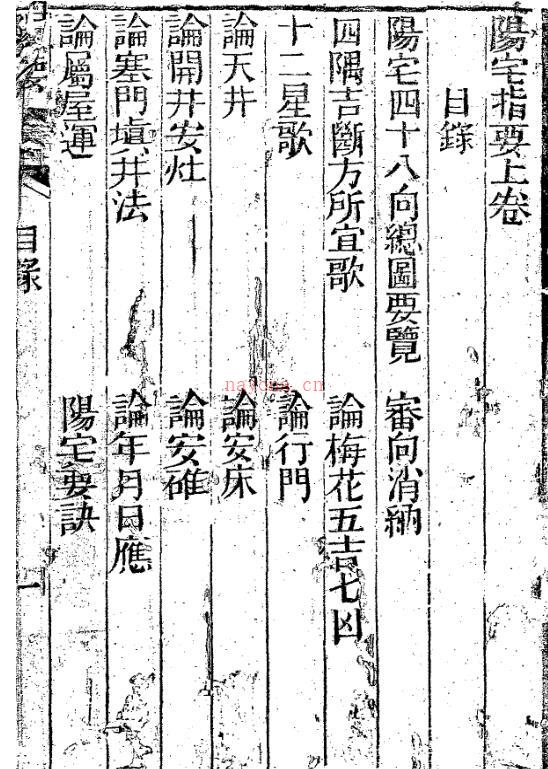 陽宅指要上卷
目錄
陽宅四十八向總圖要覽 審向消納
四隅吉斷方所宜歌 論梅花五吉七凶
十二星歌 論行門
論天井 論安床
論開井安灶 論安碓
論塞門塡井法 論年月日應
論屬屋運 陽宅要訣
目錄 一